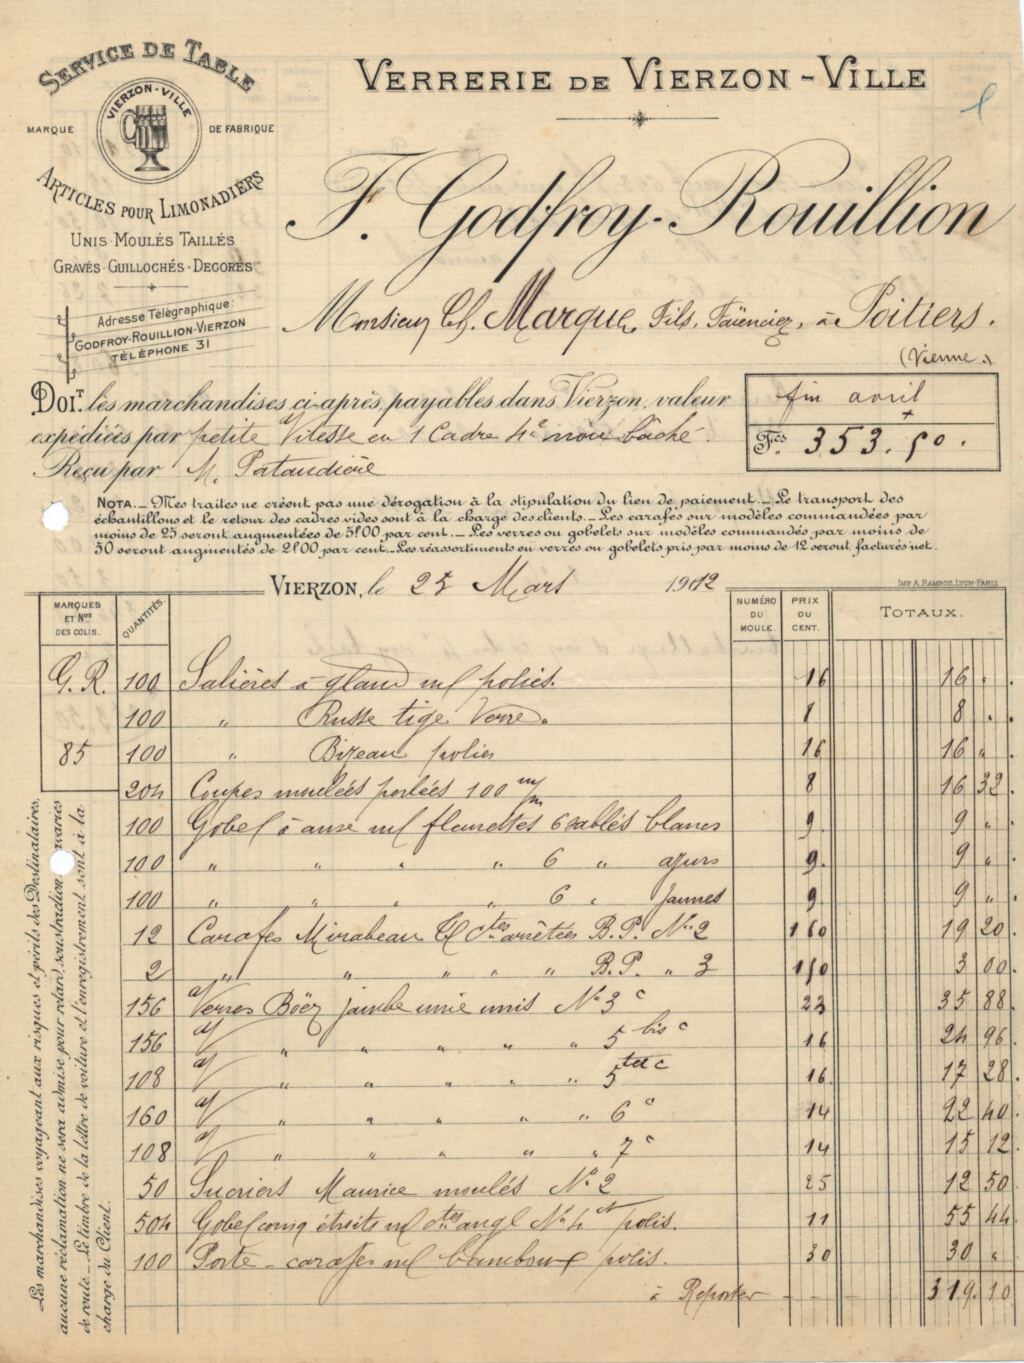 SERVICE DE TABLE
VIERZON-VILLE
MARQUE DE FABRIQUE
ARTICLES POUR LIMONADIERS
UNIS · MOULÉS TAILLÉS
GRAVÉS · GUILLOCHÉS · DECORÉS
Adresse Télégraphique:
GODFROY-ROUILLION-VIERZON
TÉLÉPHONE 31
VERRERIE DE VIERZON-VILLE
F. Godfroy-Rouillion
Monsieur Ch. Marque, Fils, Faïencier, à Poitiers.
(Vienne.)
DOIT les marchandises ci-après, payables dans Vierzon, valeur fin avril
expédiées par petite Vitesse en 1 Cadre 4c non bâché. Fcs 353.50.
Reçu par M. Pataudière
NOTA._ Mes traites ne créent pas une dérogation à la stipulation du lien de paiement._ Le transport des
échantillons et le retour des cadres vides sont à la charge des clients._ Les carafes sur modèles commandées par
moins de 25 seront augmentées de 5f.00 par cent._ Les verres ou gobelets sur modèles commandés par moins de
50 seront augmentés de 2f.00 par cent._ Les réassortiments en verres ou gobelets pris par moins de 12 seront facturés net.
VIERZON, le 25 Mars 1912
IMP. A. RAMBOZ, LYON-PARIS
MARQUES ET Nos DES COLIS. QUANTITÉS. NUMÉRO DU MOULE. PRIX DU CENT. TOTAUX.
G. R. 100 Salières à gland ml polies. 16 16 "
100 " Russe tige Verre. 8 8 "
85 100 " Bizeau polies 16 16 "
204 Coupes moulées perlées 100 m/m 8 16 32
100 Gobel à anse ml fleurettes 6 sablés blancs 9 9 "
100 " " " " 6 " azurs 9 9 "
100 " " " " 6 " jaunes 9 9 "
12 Carafes Mirabeau Ctes arrêtées B.P. No 2 160 19 20
2 " " " " " B.P. " 3 150 3 00
156 Verres Boëz jambe unie unis No 3 c 23 35 88
156 " " " " " 5 bis c 16 24 96
108 " " " " " 5 ter c 16 17 28
160 " " " " " 6 c 14 22 40
108 " " " " " 7 c 14 15 12
50 Sucriers Maurice moulés No 2 25 12 50
504 Gobel coniq étroits ml ctes angl No 4 ct polis. 11 55 44
100 Porte-carafes ml bamboux polis. 30 30 "
à Reporter 319.10
Les marchandises voyageant aux risques et périls des Destinataires,
aucune réclamation ne sera admise pour retard, soustraction avaries
de route._ Le timbre de la lettre de voiture et l'enregistrement sont à la
charge du Client.